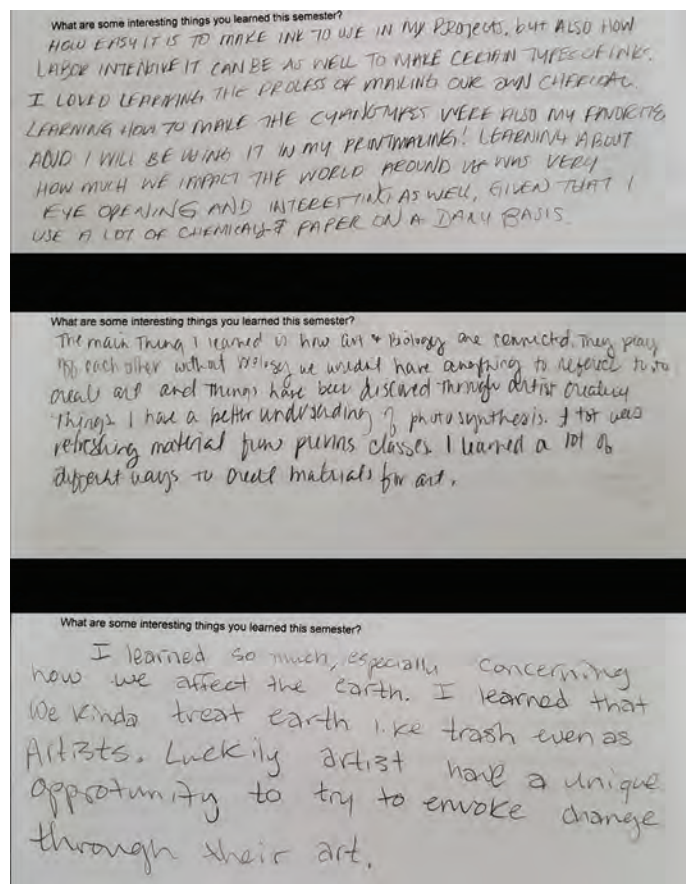 What are some interesting things you learned this semester?
HOW EASY IT IS TO MAKE INK TO USE IN MY PROJECTS, but ALSO HOW
LABOR INTENSIVE IT CAN BE AS WELL TO MAKE CERTAIN TYPES OF INKS.
I LOVED LEARNING THE PROCESS OF MAKING OUR OWN CHARCOAL
LEARNING HOW TO MAKE THE CYANOTYPES WERE ALSO MY FAVORITE
AND I WILL BE USING IT IN MY PRINTMAKING! LEARNING ABOUT
HOW MUCH WE IMPACT THE WORLD AROUND US WAS VERY
EYE OPENING AND INTERESTING AS WELL, GIVEN THAT I
USE A LOT OF CHEMICALS & PAPER ON A DAILY BASIS.
What are some interesting things you learned this semester?
The main Thing I learned is how art & Biology are connected. They play
off each other without biology we wouldnt have anything to to
create art and Things have been through artist
Things I have a better of photosynthesis. I
refreshing material from classes. I learned a lot of
different ways to create materials for art.
What are some interesting things you learned this semester?
I learned so much, especially concerning
how we affect the earth. I learned that
We kinda treat earth like trash even as
Artists. Luckily artist have a unique
opprotunity to try to envoke change
through their art.